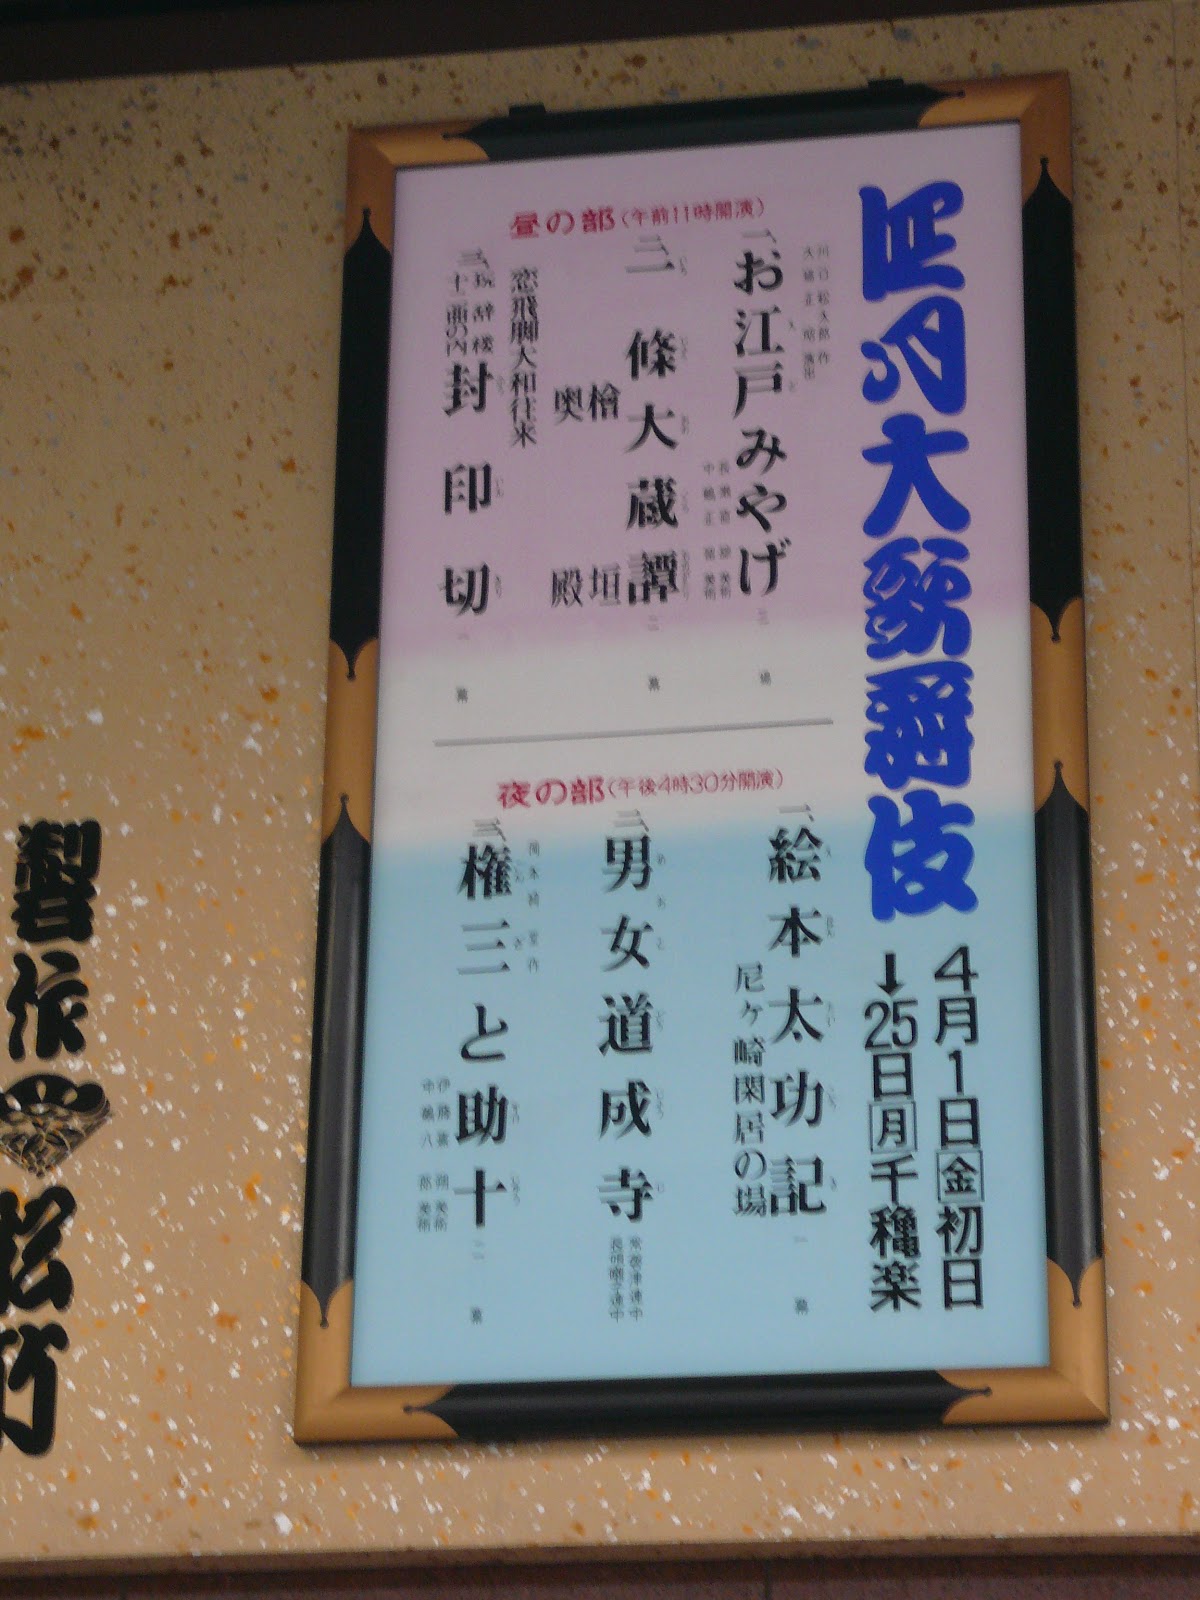 四月大歌舞伎
4月1日金初日
→25日月千穐楽
昼の部(午前11時開演)
川口松太郎 作
大場正昭 演出
一、お江戸みやげ
中嶋正留 美術
三場
二、一條大蔵譚
檜垣
奥殿
二幕
恋飛脚大和往来
三、玩辞楼十二曲の内
封印切
一幕
夜の部(午後4時30分開演)
一、絵本太功記
尼ヶ崎閑居の場
一幕
二、男女道成寺
常磐津連中
長唄囃子連中
三、岡本綺堂 作
権三と助十
伊藤熹朔 美術
中嶋八郎 美術
二幕
製作
松竹